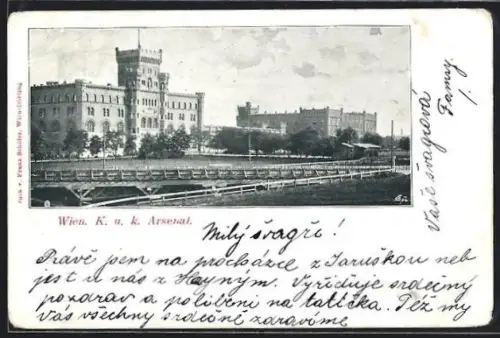 Wien. K. u. k. Arsenal.
Milý švagře!
Právě jsem na procházce z Jaruškou neb
jest u nás z Hayným. Vyřiďuje srdečný
pozdrav a políbení na tatíčka. Též my
Vás všechny srdečně zdravíme
Vaše švagrová
Fanny.